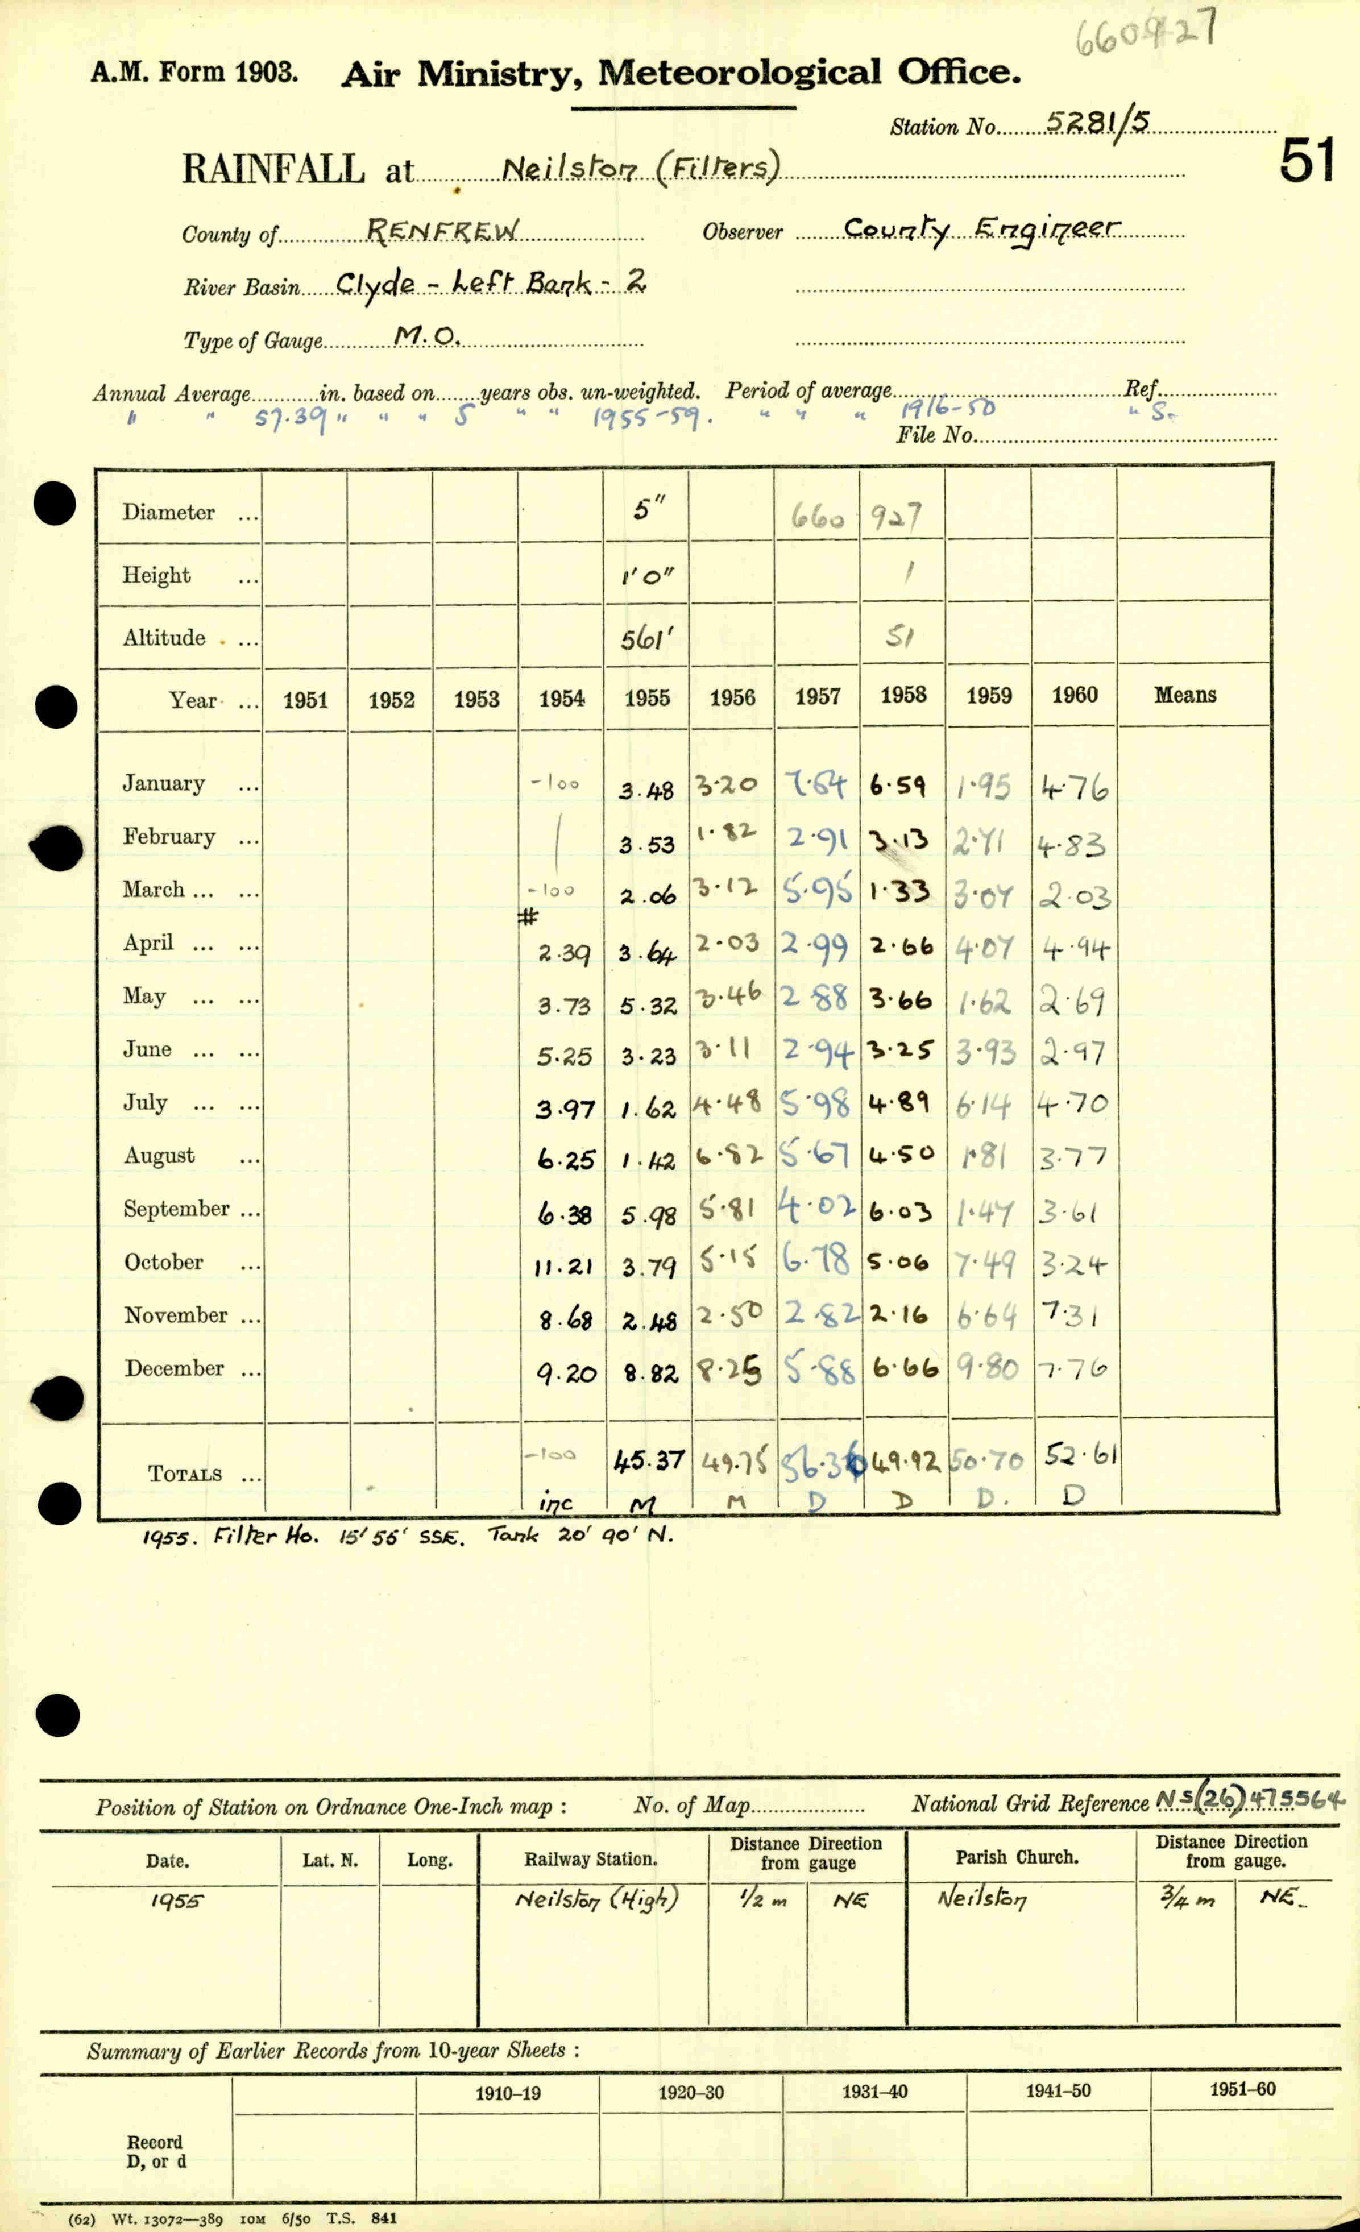 660927
A.M. Form 1903. Air Ministry, Meteorological Office.
Station No. 5281/5
51
RAINFALL at Neilston (Filters)
County of RENFREW Observer County Engineer
River Basin Clyde - Left Bank - 2
Type of Gauge M.O.
Annual Average in. based on years obs. un-weighted. Period of average Ref.
" " 57.39 " " " 5 " " 1955-59. " " " 1916-50 " S-
File No.
Diameter ... 5" 660 927
Height ... 1'0" 1
Altitude ... 561' 51
Year ... 1951 1952 1953 1954 1955 1956 1957 1958 1959 1960 Means
January ... -100 3.48 3.20 7.54 6.59 1.95 4.76
February ... 3.53 1.82 2.91 3.13 2.71 4.83
March ... ... -100 2.06 3.12 5.95 1.33 3.07 2.03
#
April ... ... 2.39 3.64 2.03 2.99 2.66 4.07 4.94
May ... ... 3.73 5.32 3.46 2.88 3.66 1.62 2.69
June ... ... 5.25 3.23 3.11 2.94 3.25 3.93 2.97
July ... ... 3.97 1.62 4.48 5.98 4.89 6.14 4.70
August ... 6.25 1.42 6.82 5.67 4.50 1.81 3.77
September ... 6.38 5.98 5.81 4.02 6.03 1.47 3.61
October ... 11.21 3.79 5.15 6.78 5.06 7.49 3.24
November ... 8.68 2.48 2.50 2.82 2.16 6.64 7.31
December ... 9.20 8.82 8.25 5.88 6.66 9.80 7.76
TOTALS ... -100 45.37 49.75 56.36 49.92 50.70 52.61
inc M M D D D. D
1955. Filter Ho. 15' 56' SSE. Tank 20' 90' N.
Position of Station on Ordnance One-Inch map : No. of Map National Grid Reference NS(26)475564
Date. Lat. N. Long. Railway Station. Distance from gauge Direction Parish Church. Distance from gauge. Direction
1955 Neilston (High) 1/2 m NE Neilston 3/4 m NE.
Summary of Earlier Records from 10-year Sheets :
1910–19 1920–30 1931–40 1941–50 1951–60
Record
D, or d
(62) Wt. 13072—389 10M 6/50 T.S. 841